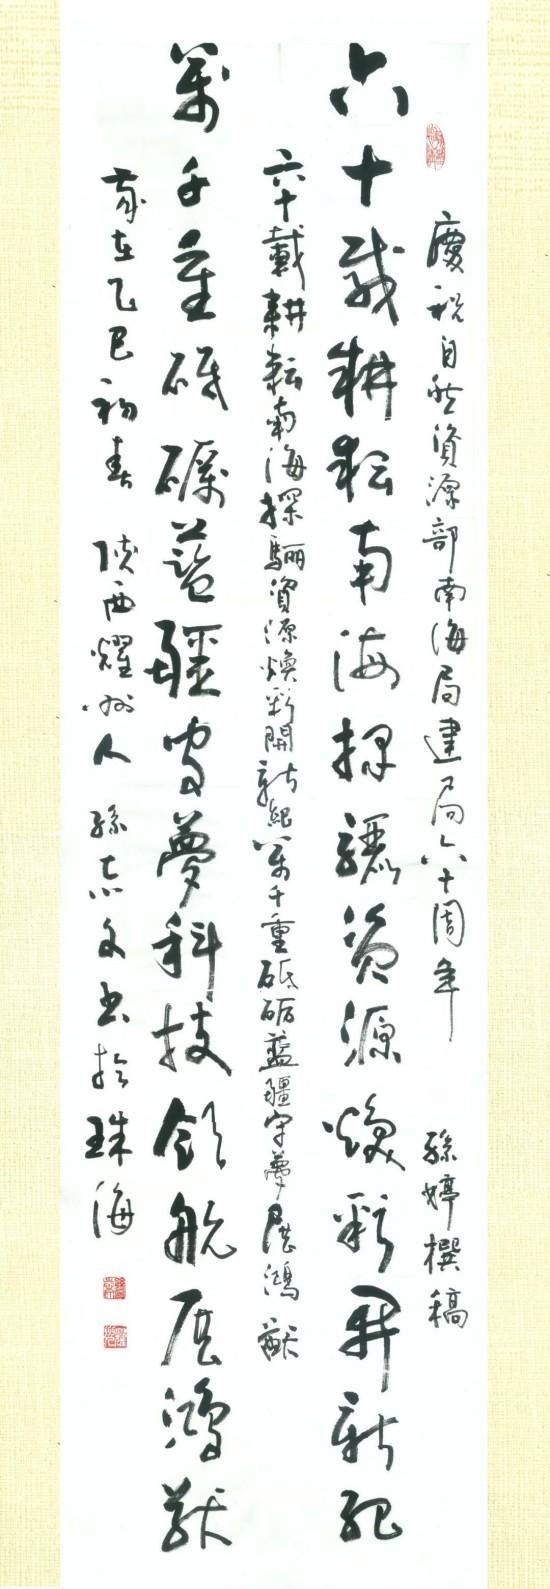 慶祝自然資源部南海局建局六十周年 孫婷撰稿
六十載耕耘南海探驪資源煥彩開新紀
六十載耕耘南海探骊資源煥彩開新紀萬千重砥砺藍疆守夢展鴻猷
萬千重砥礪藍疆守夢科技領航展鴻猷
歲在乙巳初春 陝西耀州人 孫志文书於珠海